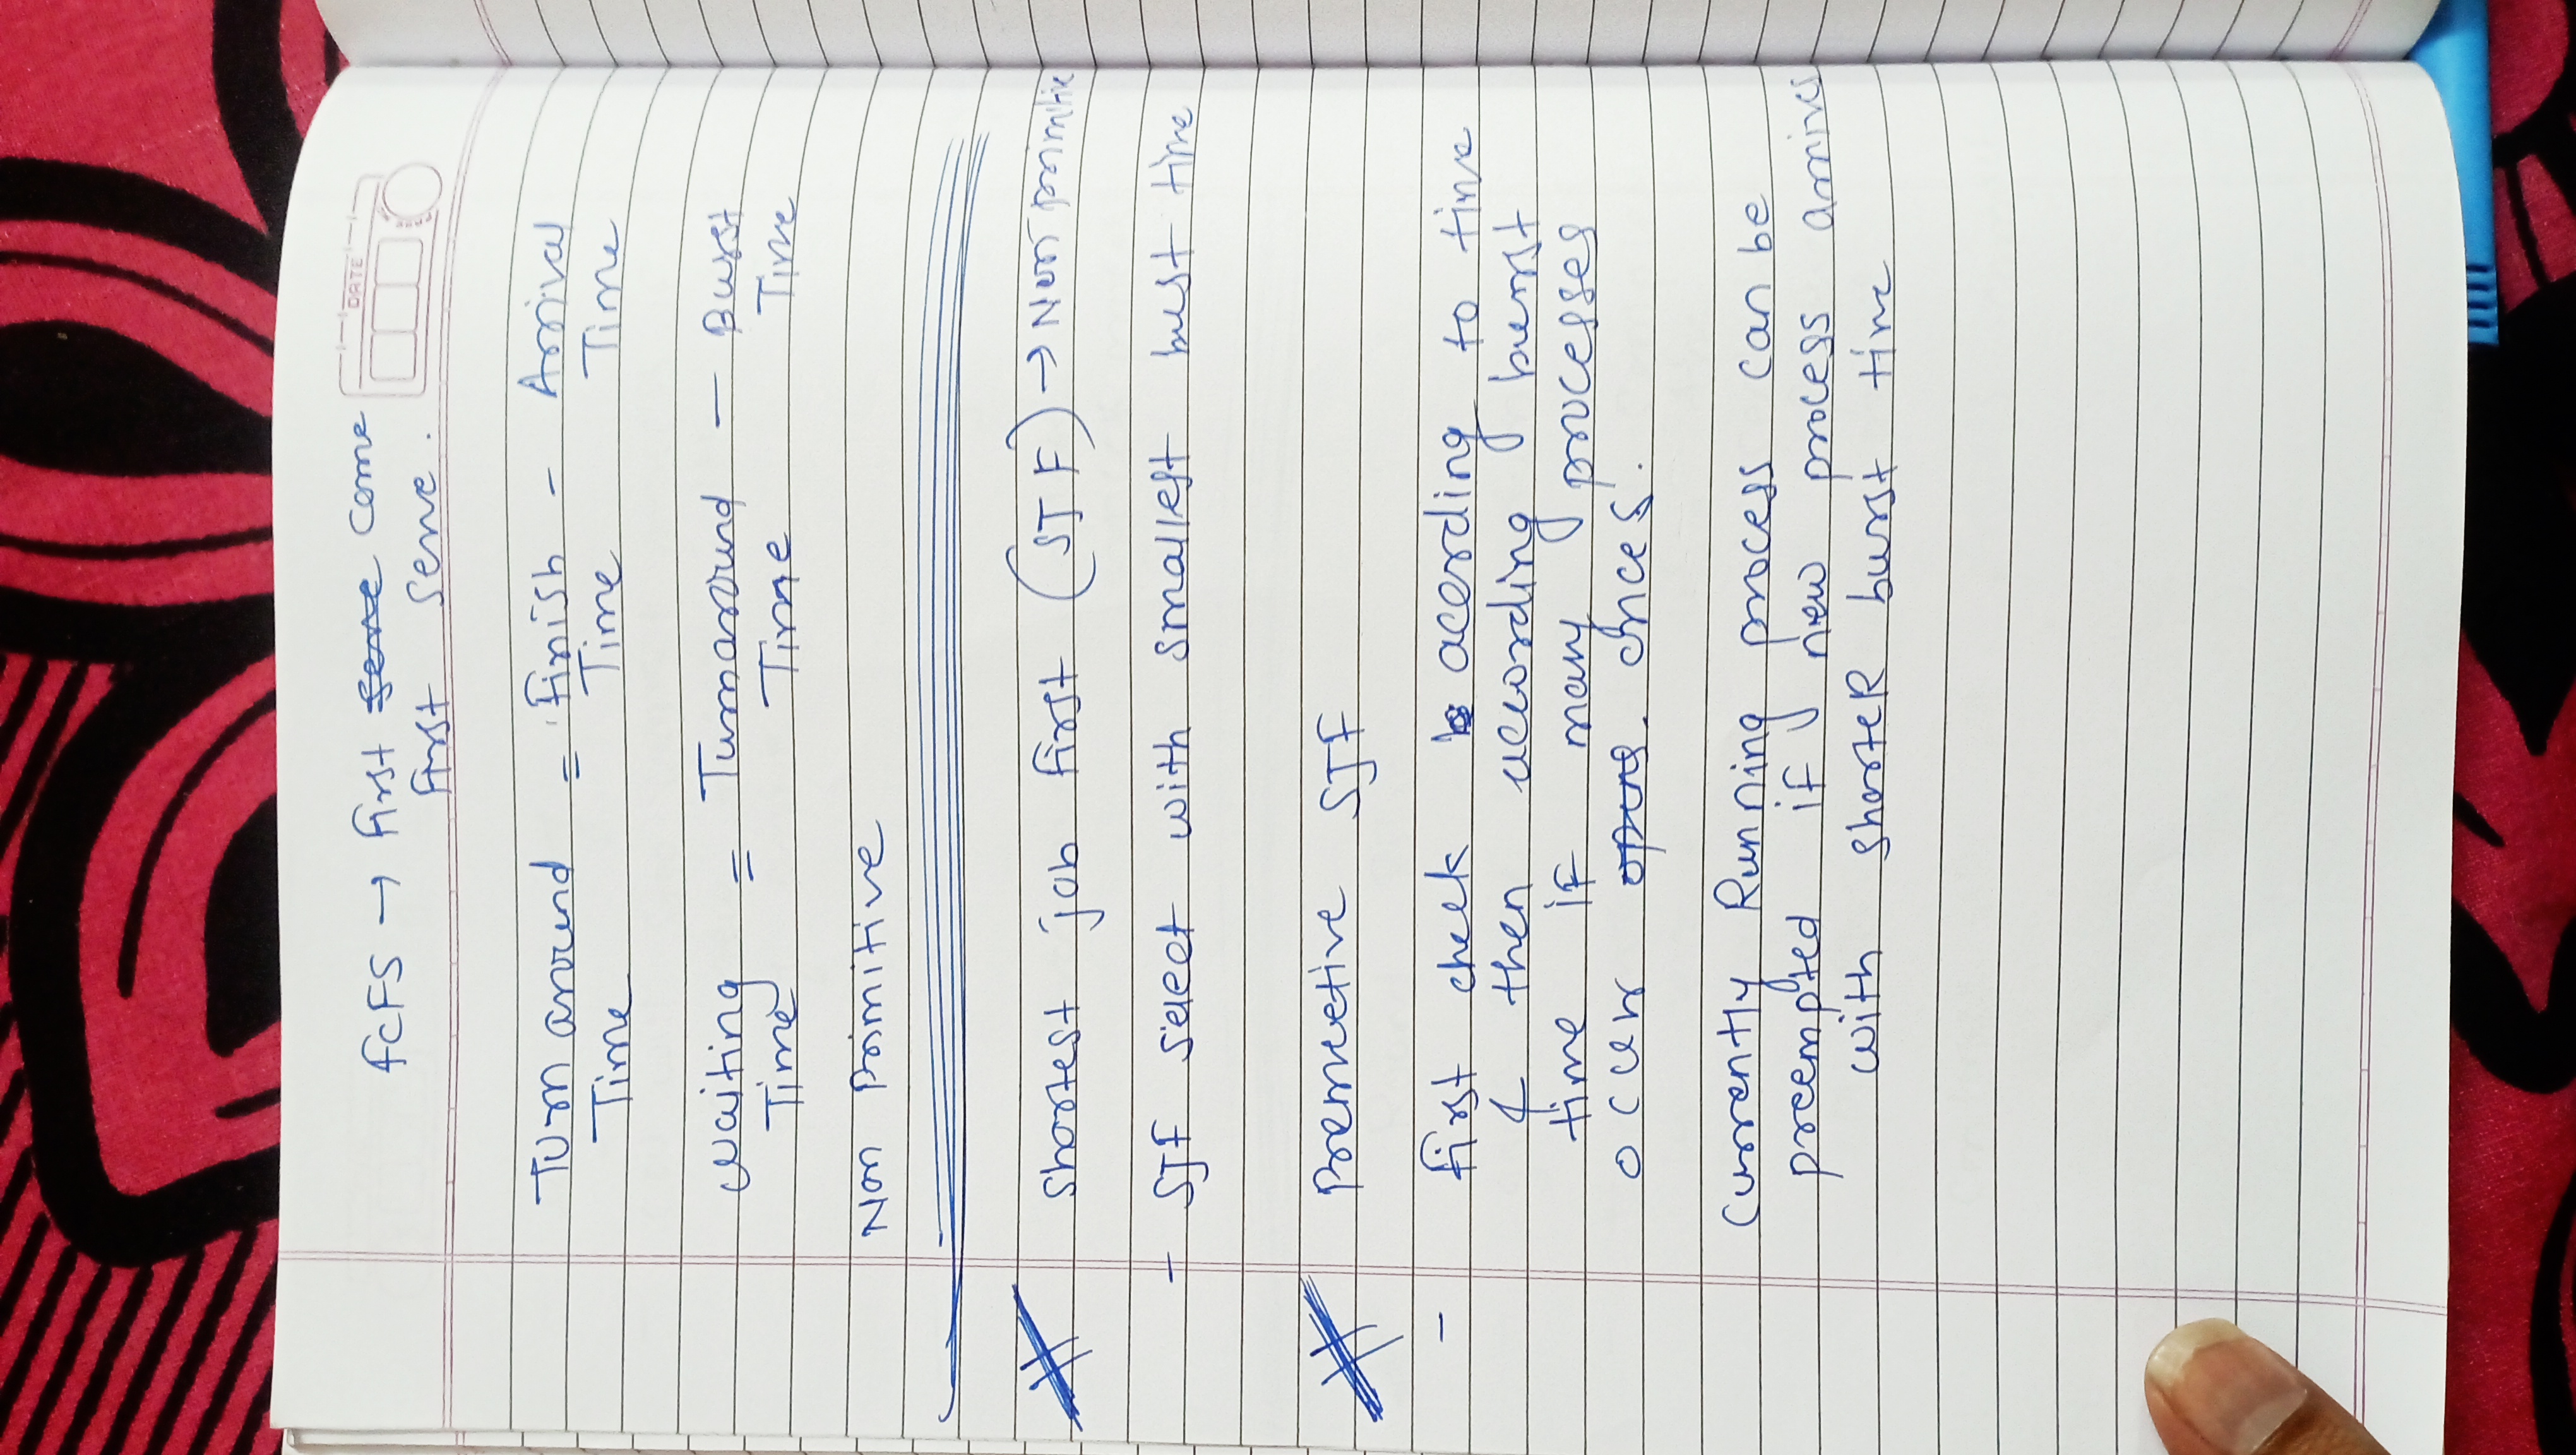 FCFS → First serve come
First serve.
DATE
Turn around = Finish - Arrival
Time Time Time
waiting = Turnaround - Burst
Time Time Time
Non Primitive
# Shortest job first (SJF) → Non primitive
- SJF select with smallest bust time
# Premeetive SJF
- first check acording to time
& then according burst
time if many processes
occur onces.
Currently Running process can be
preempted if new process arrives
with shorteR burst time